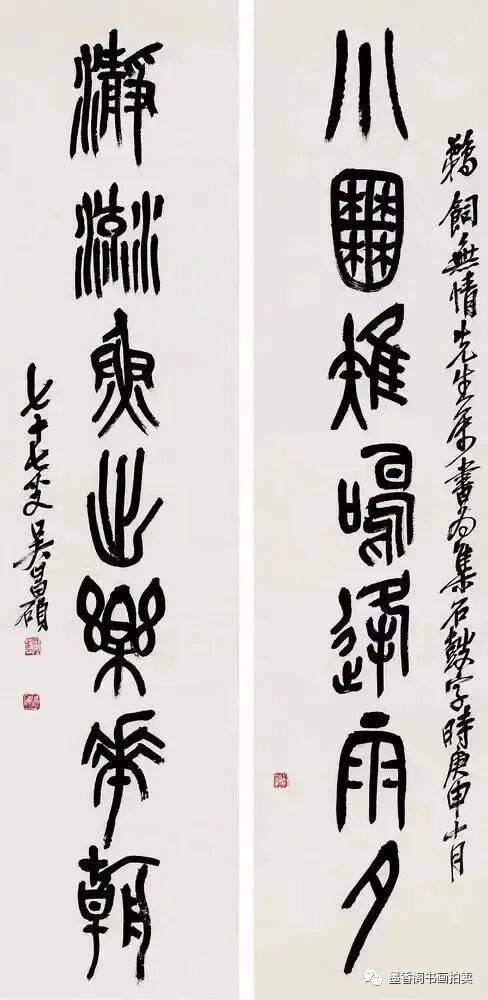 鵜飼無情先生屬書為集石鼓字時庚申十月
小囿雉鳴逢雨夕
瀞流魚出樂華朝
七十七叟吳昌碩
墨香阁书画拍卖